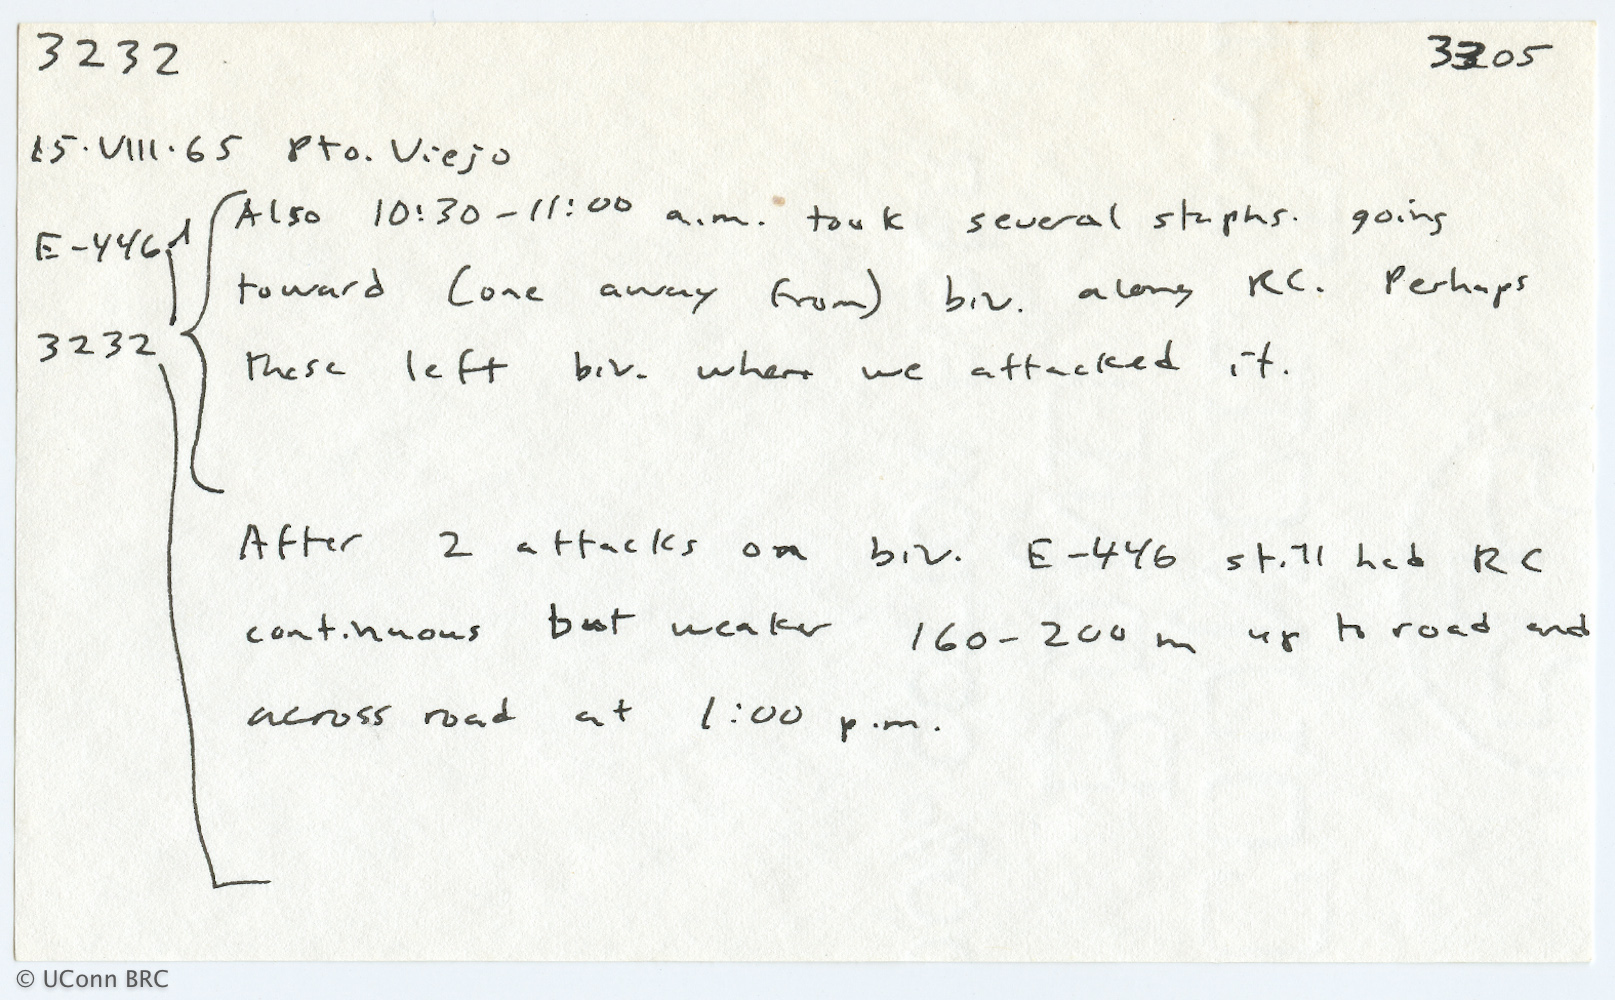 3232 3205
15·VIII·65 Pto. Viejo
E-446
3232
Also 10:30-11:00 a.m. took several staphs. going
toward (one away from) biv. along RC. Perhaps
these left biv. when we attacked it.
After 2 attacks on biv. E-446 still had RC
continuous but weaker 160-200 m up to road and
across road at 1:00 p.m.
© UConn BRC